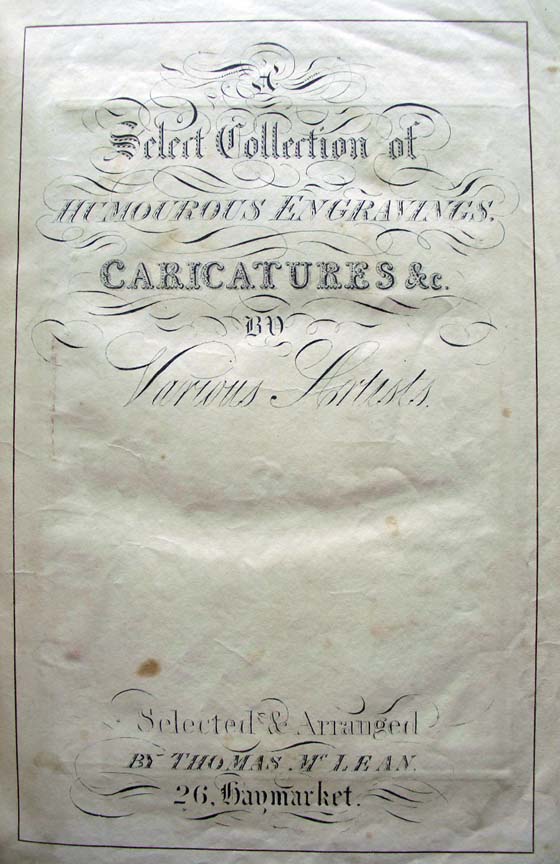 A
Select Collection of
HUMOUROUS ENGRAVINGS.
CARICATURES &c.
BY
Various Artists.
Selected & Arranged
BY THOMAS. Mc LEAN.
26, Haymarket.